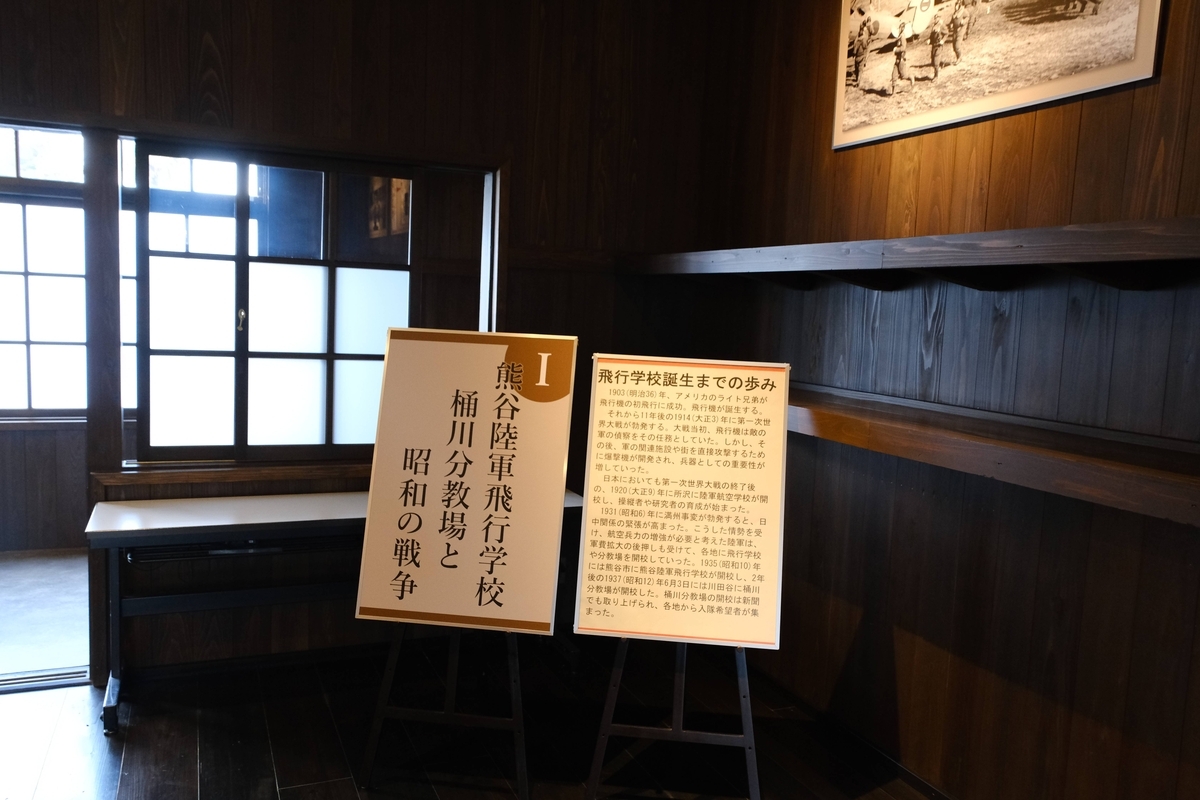 I
熊谷陸軍飛行学校
桶川分教場と
昭和の戦争
飛行学校誕生までの歩み
1903(明治36)年、アメリカのライト兄弟が
飛行機の初飛行に成功。飛行機が誕生する。
それから11年後の1914(大正3)年に第一次世
界大戦が勃発する。大戦当初、飛行機は敵の
軍の偵察をその任務としていた。しかし、そ
の後、軍の関連施設や街を直接攻撃するため
に爆撃機が開発され、兵器としての重要性が
増していった。
日本においても第一次世界大戦の終了後
の、1920(大正9)年に所沢に陸軍航空学校が開
校し、操縦者や研究者の育成が始まった。
1931(昭和6)年に満州事変が勃発すると、日
中関係の緊張が高まった。こうした情勢を受
け、航空兵力の増強が必要と考えた陸軍は、
軍費拡大の後押しも受けて、各地に飛行学校
や分教場を開校していった。1935(昭和10)年
には熊谷市に熊谷陸軍飛行学校が開校し、2年
後の1937(昭和12)年6月3日には川田谷に桶川
分教場が開校した。桶川分教場の開校は新聞
でも取り上げられ、各地から入隊希望者が集
まった。